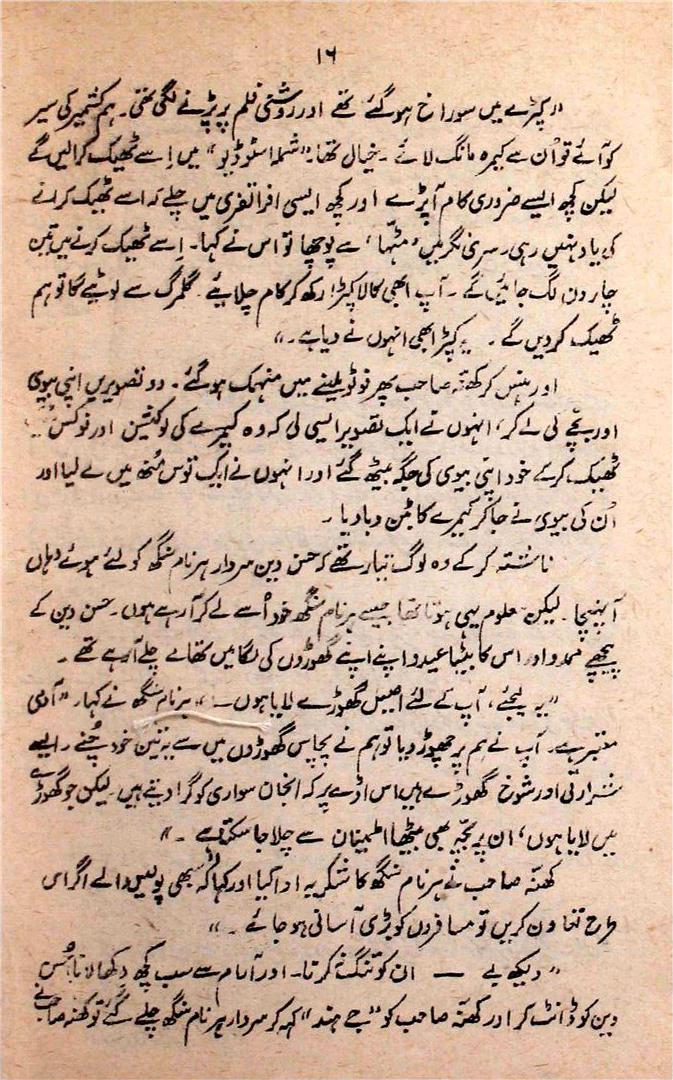 ۱۶
”کپڑے میں سوراخ ہوگئے تھے اور روشنی فلم پر پڑنے لگی تھی۔ ہم کشمیر کی سیر
کو آئے تو اُن سے کیمرہ مانگ لائے۔ خیال تھا۔ ”شملہ اسٹوڈیو“ میں اِسے ٹھیک کرالیں گے
لیکن کچھ ایسے ضروری کام آپڑے اور کچھ ایسی افراتفری میں چلے کہ اسے ٹھیک کرانے
کی یاد نہیں رہی۔ سری نگر میں ’مٹہا‘ سے پوچھا تو اس نے کہا۔ اِسے ٹھیک کرنے میں تین
چار دن لگ جائیں گے۔ آپ ابھی کالا کپڑا رکھ کر کام چلایئے۔ گلمرگ سے لوٹیے گا تو ہم
ٹھیک کردیں گے۔ یہ کپڑا ابھی انہوں نے دیا ہے۔“
اور ہنس کر کھنّہ صاحب پھر فوٹو لینے میں منہمک ہوگئے۔ دو تصویریں اپنی بیوی
اور بچّے کی لے کر، انہوں نے ایک تصویر ایسی لی کہ وہ کیمرے کی لوکیشن اور فوکس
ٹھیک کرکے خود اپنی بیوی کی جگہ بیٹھ گئے اور انہوں نے ایک توس مُنھ میں لے لیا اور
اُن کی بیوی نے جاکر کیمرے کا بٹن دبادیا۔
ناشتہ کرکے وہ لوگ تیار تھے کہ حسن دین سردار ہرنام سنگھ کو لئے ہوئے وہاں
آپہنچا۔ لیکن معلوم یہی ہوتا تھا جیسے ہرنام سنگھ خود اُسے لے کر آرہے ہوں۔ حسن دین کے
پیچھے ممدو اور اس کا بیٹا عیدو اپنے اپنے گھوڑوں کی لگامیں تھامے چلے آرہے تھے۔
”یہ لیجئے، آپ کے لئے اصیل گھوڑے لایا ہوں —“ ہرنام سنگھ نے کہا۔ ”آدمی
معتبر ہے۔ آپ نے ہم پر چھوڑ دیا تو ہم نے پچاس گھوڑوں میں سے یہ تین خود چُنے۔ ایسے
شرارتی اور شوخ گھوڑے ہیں اس اڈے پر کہ انجان سواری کو گرا دیتے ہیں۔ لیکن جو گھوڑے
میں لایا ہوں، ان پر بچّہ بھی بیٹھا اطمینان سے چلا جا سکتا ہے۔“
کھنّہ صاحب نے ہرنام سنگھ کا شکریہ ادا کیا اور کہا کہ سبھی پولیس والے اگر اس
طرح تعاون کریں تو مسافروں کو بڑی آسانی ہو جائے۔“
”دیکھ بے — ان کو تنگ نہ کرنا۔ اور آرام سے سب کچھ دکھالانا“ حُسن
دین کو ڈانٹ کر اور کھنّہ صاحب کو ”جے ہند“ کہہ کر سردار ہرنام سنگھ چلے گئے تو کھنہ صاحب نے